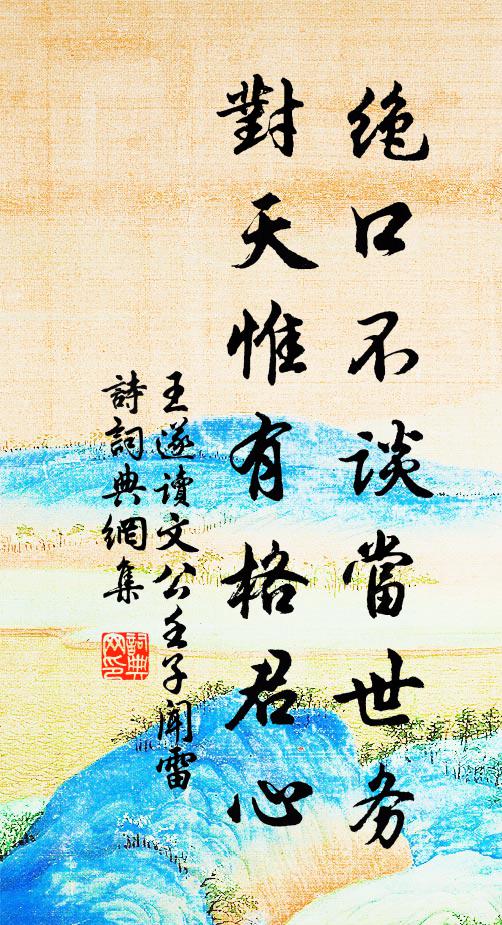 绝口不談當世务
對天惟有格君心
王遂讀文公壬子聞雷
詩詞典網集